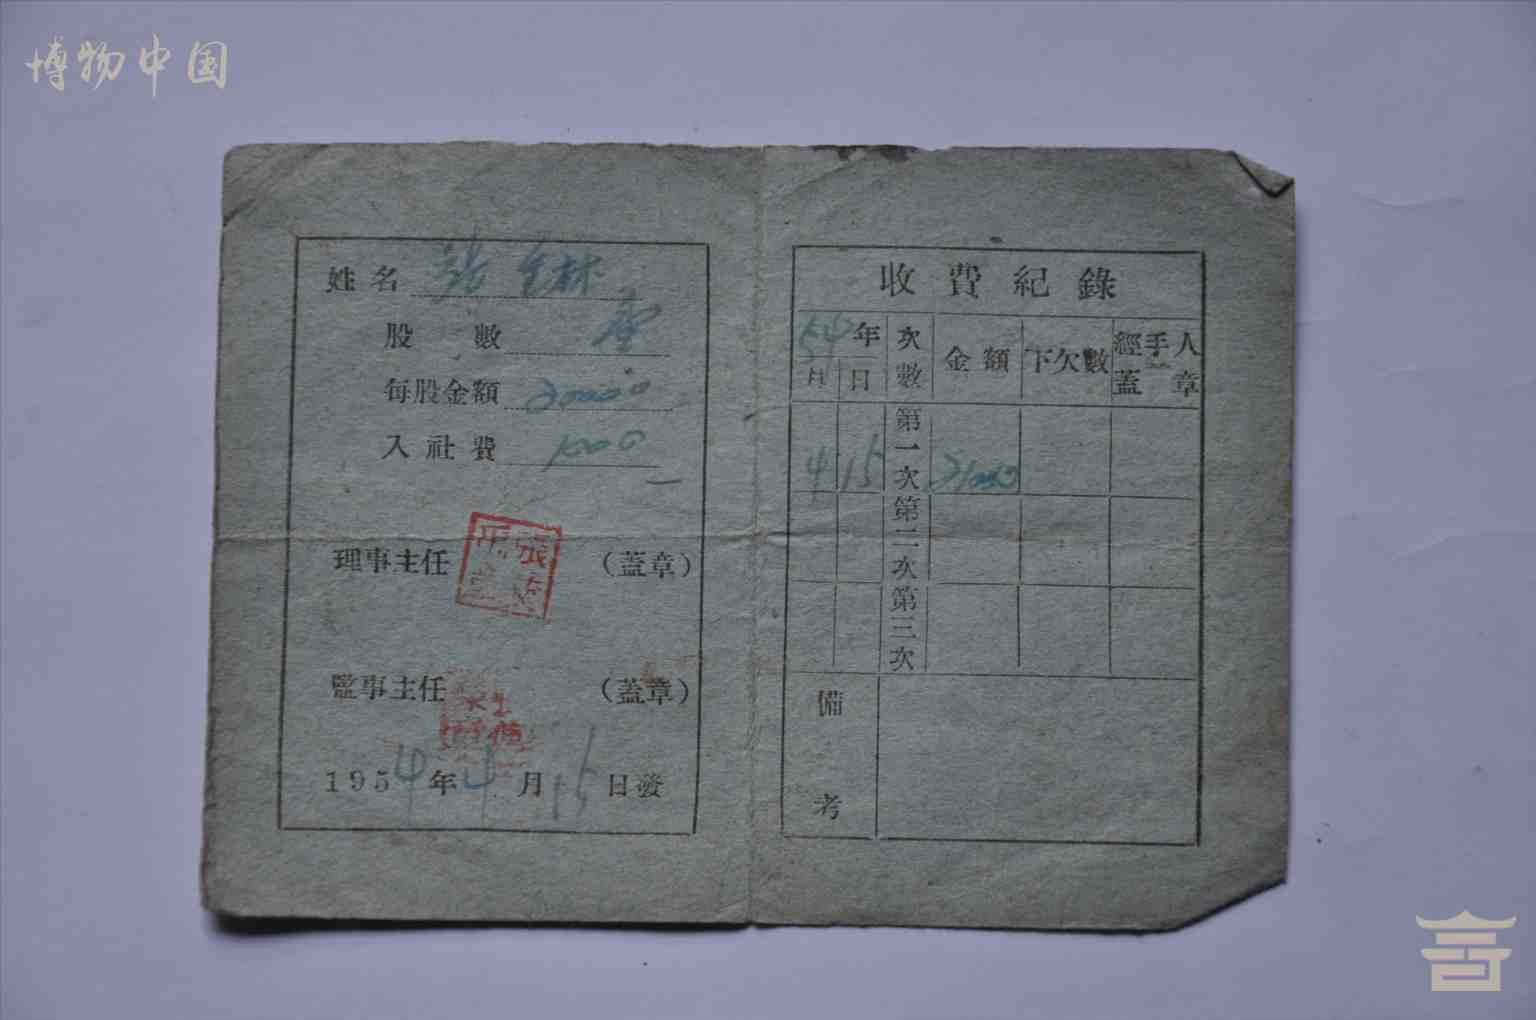 博物中国
姓名
股數 壹
每股金額 20000
入社費 1000
理事主任 （蓋章）
監事主任 （蓋章）
1954年4月15日發
收費紀錄
54年 次數 金額 下欠數 經手人蓋章
月 日
4 15 第一次 21000
第二次
第三次
備考